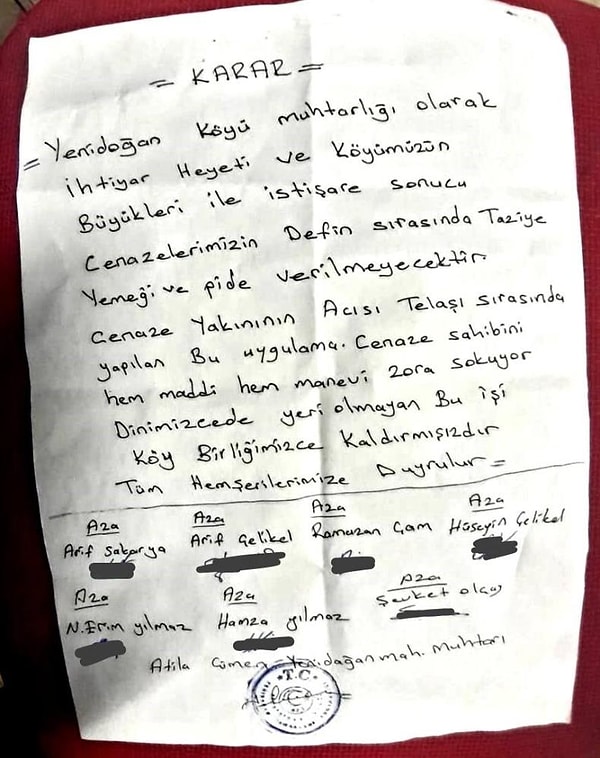 = KARAR =
= Yenidoğan Köyü muhtarlığı olarak
ihtiyar Heyeti ve Köyümüzün
Büyükleri ile istişare sonucu
Cenazelerimizin Defin sırasında Taziye
Yemeği ve pide verilmeyecektir.
Cenaze Yakınının Acısı Telaşı sırasında
yapılan Bu uygulama. Cenaze sahibini
hem maddi hem manevi zora sokuyor
Dinimizcede yeri olmayan Bu işi
Köy Birliğimizce Kaldırmışızdır
Tüm Hemşerilerimize Duyrulur =
Aza Aza Aza Aza
Arif Sakarya Arif Çelikel Ramazan Çam Hüseyin Çelikel
Aza Aza Aza
N. Erim yılmaz Hamza yılmaz Şevket olcay
Atila Yenidağan mah. muhtarı
T.C.